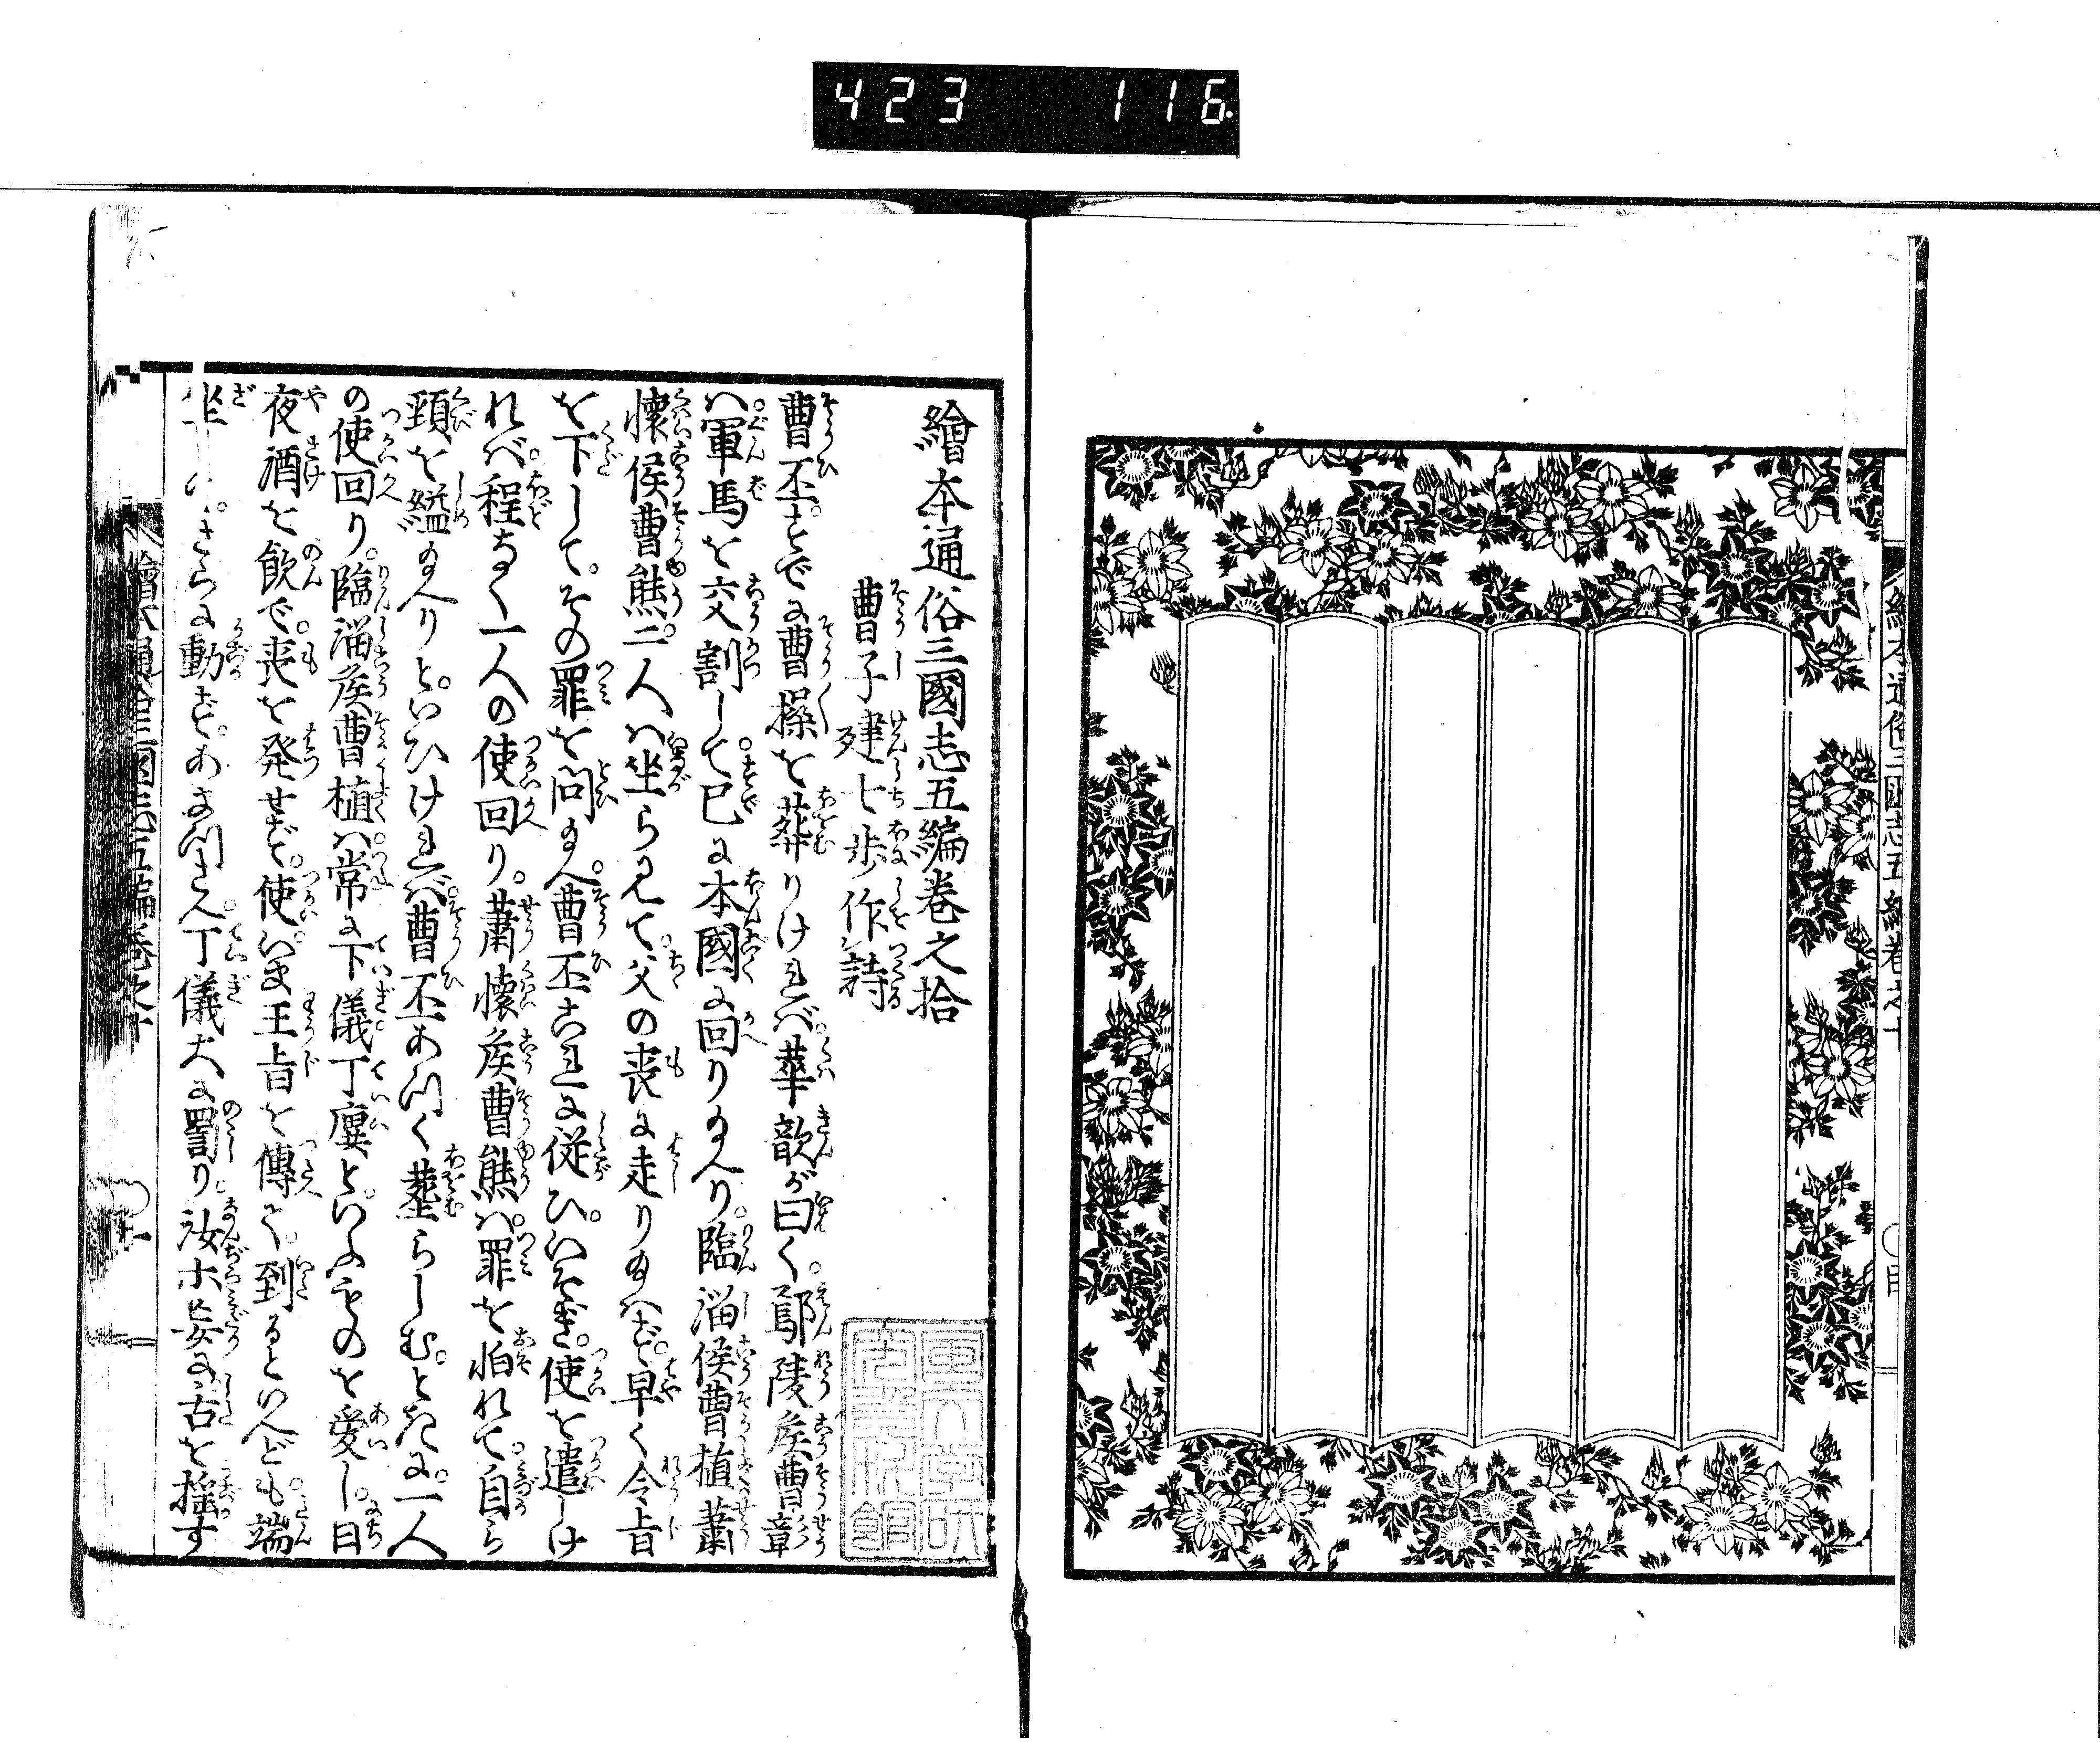 423 116
繪本通俗三國志五編巻之十
目
繪本通俗三國志五編巻之拾
曹子建七歩作詩
曹丕すでに曹操を葬りければ。華歆が曰く。鄢陵侯曹彰
ハ軍馬を交割して。已に本國に回り給へり。臨淄侯曹植蕭
懐侯曹熊。二人ハ坐ら見て。父の喪に走り給ハず。早く令旨
を下して。その罪を問給へ。曹丕これに従ひ。いそぎ。使を遣しけ
れバ。程なく一人の使回り。蕭懐侯曹熊ハ。罪を怕れて。自ら
頸を縊給へりと。いひければ。曹丕あつく葬らしむ。ときに。一人
の使回り。臨淄侯曹植ハ。常に丁儀。丁廙と。いふものを愛し。日
夜酒を飲で。喪を発せず。使。いま王旨を傳て。到るといへども。端
坐 。さらに動ず。あまつさへ。丁儀大に罵り。汝ホ妄に舌を揺す
繪本通俗三國志五編巻之十